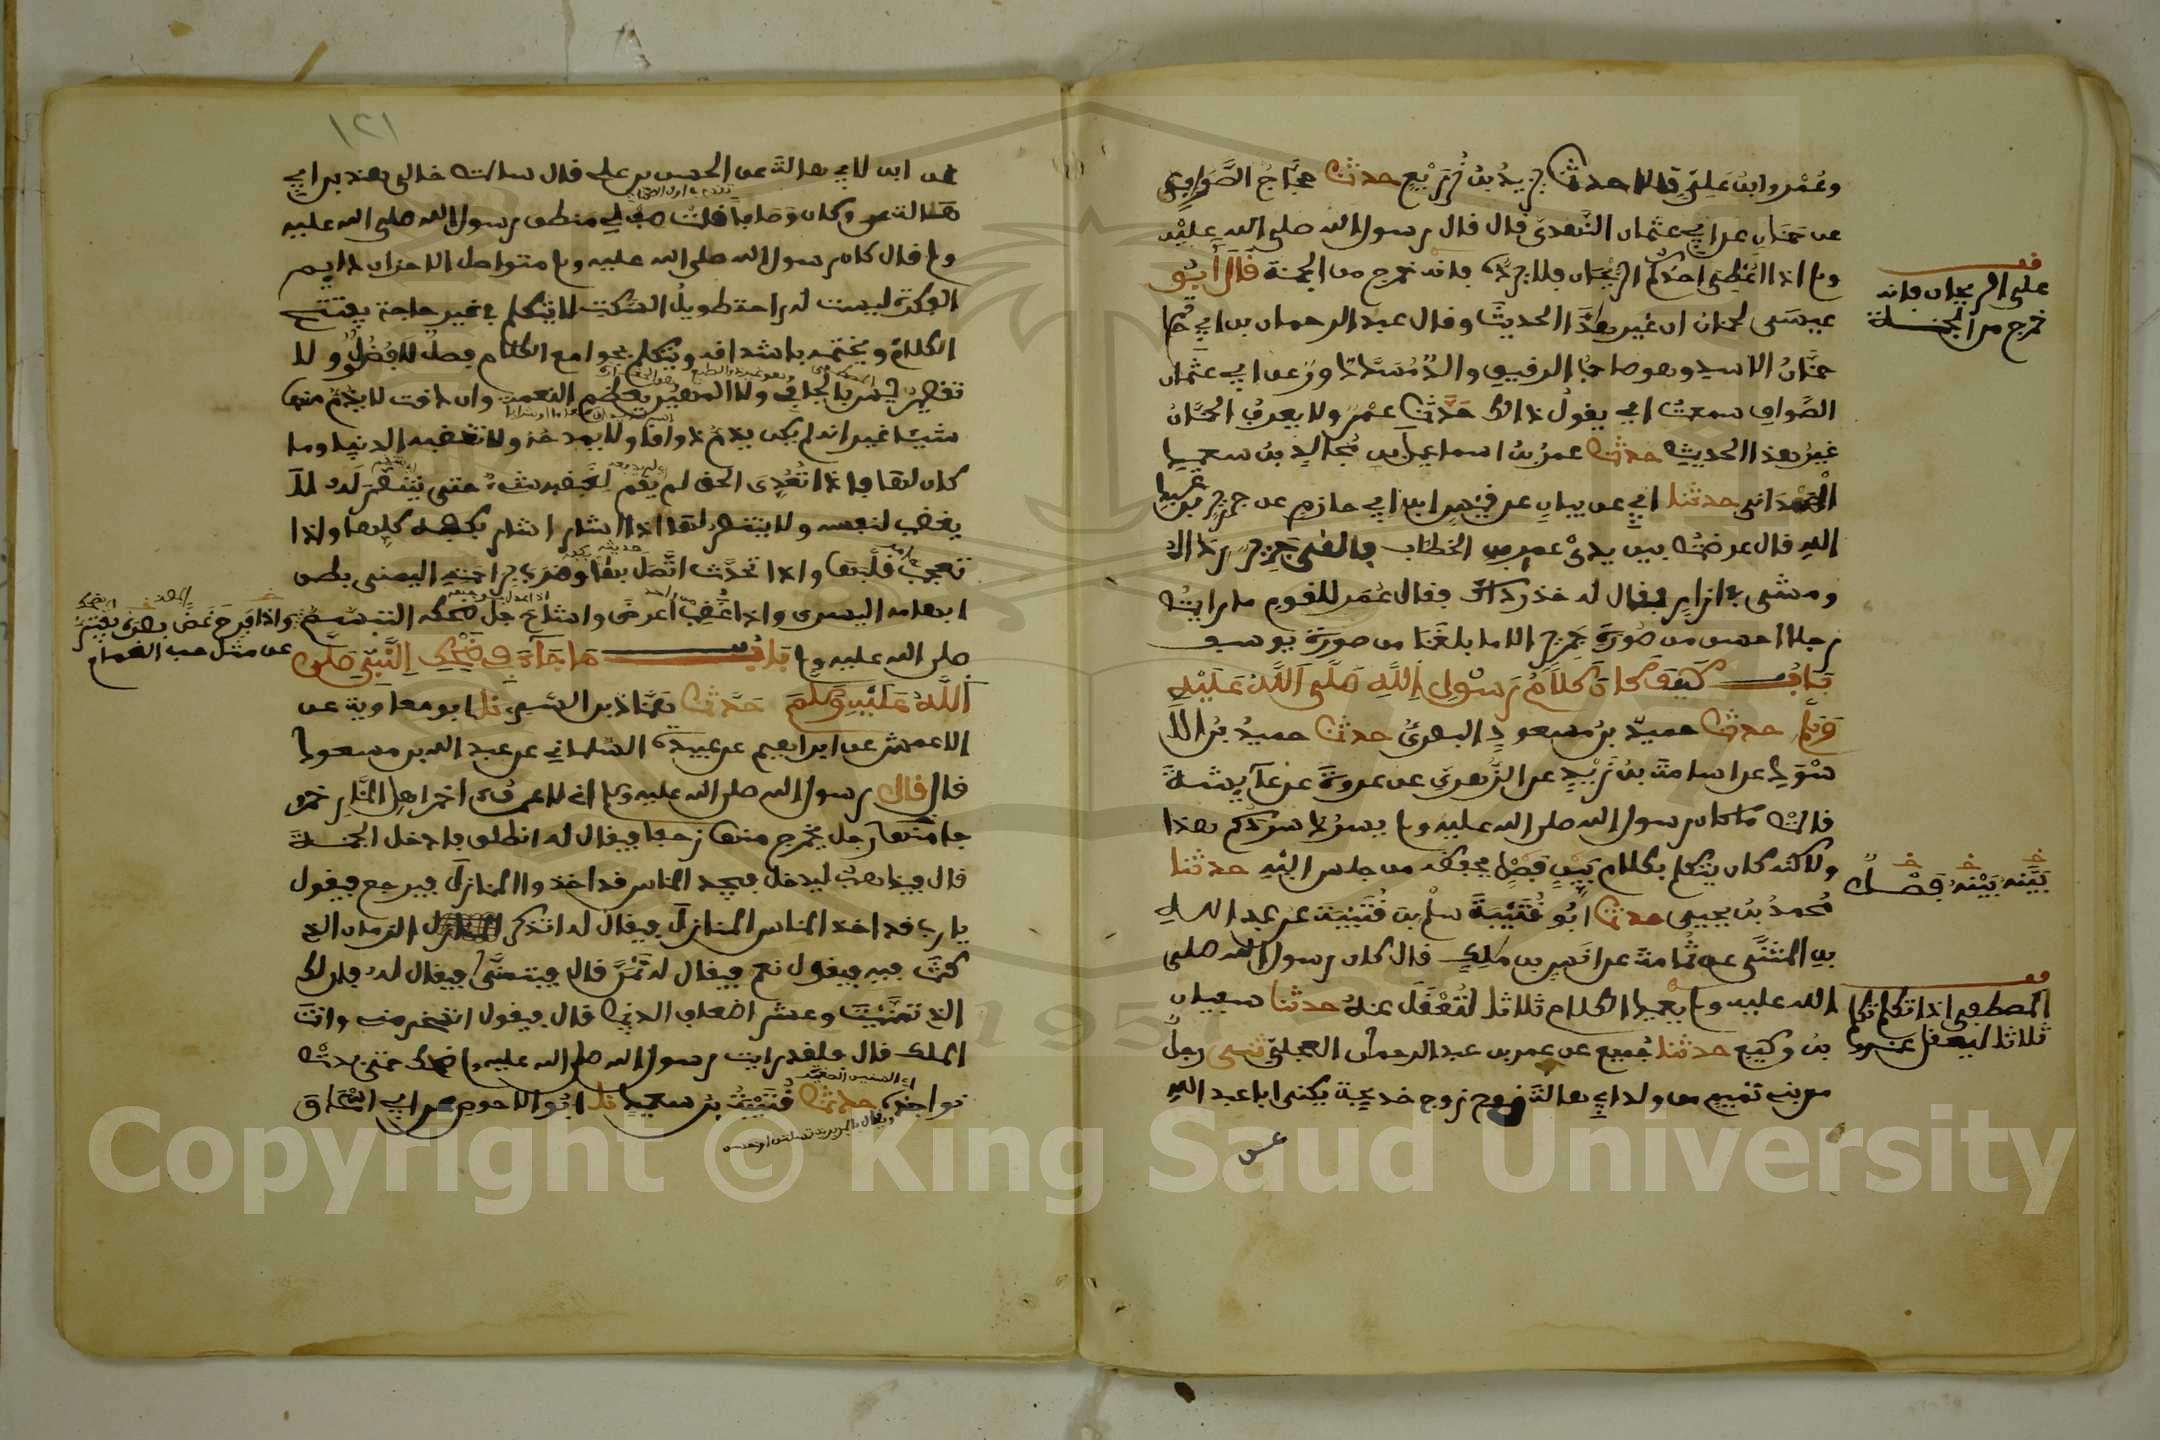 وعمرو ابن علي قالا حدثنا يزيد بن زريع حدثنا حجاج الصواف
عن حنان عن ابي عثمان النهدي قال قال رسول الله صلى الله عليه
وسلم اذا اعطي احدكم الريحان فلا يرده فانه خرج من الجنة قال ابو
عيسى لحنان ان غير هذا الحديث وقال عبد الرحمان بن ابي حاتم
حنان الاسدي وهو صاحب الرقيق والد مسدد وروى عن ابي عثمان
الصواف سمعت ابي يقول ذالك حدثنا عمر ولا يعرف لحنان
غير هذا الحديث حدثنا عمر بن اسماعيل بن مجالد بن سعيد
الهمداني حدثنا ابي عن بيان عن قيس ابن ابي حازم عن جرير بن عبد
الله قال عرضت بين يدي عمر بن الخطاب فالقى جرير رداءه
ومشى في ازار فقال له خذ رداءك فقال عمر للقوم ما رايت
رجلا احسن من صورة جرير الا ما بلغنا من صورة يوسف
باب كيف كان كلام رسول الله صلى الله عليه
وسلم حدثنا حميد بن مسعود البصري حدثنا حميد بن الا
سود عن اسامة بن زيد عن الزهري عن عروة عن عايشة
قالت ما كان رسول الله صلى الله عليه وسلم يسرد سردكم هذا
ولاكنه كان يتكلم بكلام بين فصل يحفظه من جلس اليه حدثنا
محمد بن يحيى حدثنا ابو قتيبة سلم بن قتيبة عن عبد الله
بن المثنى عن ثمامة عن انس بن ملك قال كان رسول الله صلى
الله عليه وسلم يعيد الكلام ثلاثا لتعقل عنه حدثنا سفيان
بن وكيع حدثنا جميع عن عمر بن عبد الرحمان العجلي ثنى رجل
من بني تميم من ولد ابي هالة زوج خديجة يكنى ابا عبد الله
عن
على الريحان فانه
خرج من الجنة
بينه بينه فصل
المصطفى اذا تكلم تكلم
ثلاثا ليعقل عنه
١٢١
عن ابن لابي هالة عن الحسن بن علي قال سالت خالي هند بن ابي
هالة وكان وصافا قلت صف لي منطق رسول الله صلى الله عليه
وسلم قال كان رسول الله صلى الله عليه وسلم متواصل الاحزان دايم
الفكرة ليست له راحة طويل السكت لا يتكلم في غير حاجة يفتتح
الكلام ويختمه باشداقه ويتكلم بجوامع الكلام فصل لا فضول ولا
تقصير ليس بالجافي ولا المهين يعظم النعمة وان دقت لا يذم منها
شيئا غير انه لم يكن يذم ذواقا ولا يمدحه ولا تغضبه الدنيا وما
كان لها فاذا تعدي الحق لم يقم لغضبه شيء حتى ينتصر له لا
يغضب لنفسه ولا ينتصر لها اذا اشار اشار بكفه كلها واذا
تعجب قلبها واذا تحدث اتصل بها وضرب براحته اليمنى بطن
ابهامه اليسرى واذا غضب اعرض واشاح جل ضحكه التبسم
واذا فرح غض بصره يفتر
عن مثل حب الغمام
صلى الله عليه وسلم باب ما جاء في ضحك النبي صلى
الله عليه وسلم حدثنا هناد بن السري نا ابو معاوية عن
الاعمش عن ابراهيم عن عبيدة السلماني عن عبد الله بن مسعود
قال قال رسول الله صلى الله عليه وسلم اني لاعرف اخر اهل النار خرو
جا منها رجل يخرج منها زحفا فيقال له انطلق فادخل الجنة
قال فيذهب ليدخل فيجد الناس قد اخذوا المنازل فيرجع فيقول
يارب قد اخذ الناس المنازل فيقال له اتذكر الزمان الذي
كنت فيه فيقول نعم فيقال له تمن قال فيتمنى فيقال له فان لك
الذي تمنيت وعشر اضعاف الدنيا قال فيقول اتسخر مني وانت
الملك قال فلقد رايت رسول الله صلى الله عليه وسلم ضحك حتى بدت
نواجذه حدثنا قتيبة بن سعيد نا ابو الاحوص عن ابي اسحاق
Copyright © King Saud University
1957